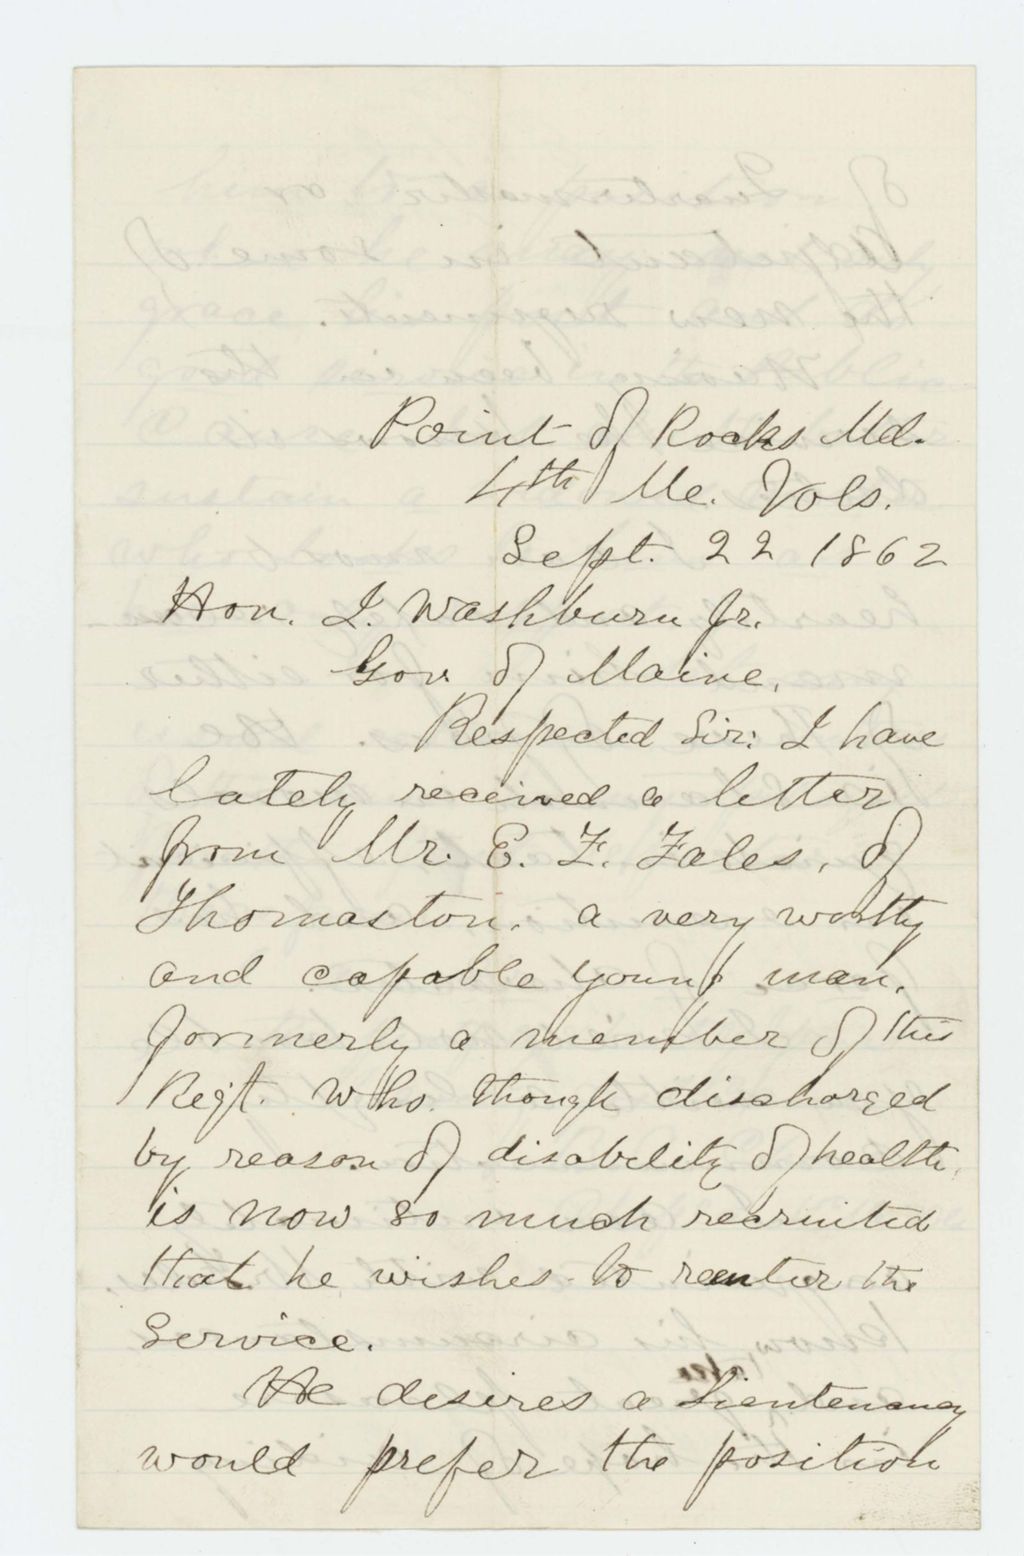 Point of Rocks Md.
4th Me. Vols.
Sept. 22 1862
Hon. I. Washburn Jr.
Gov. of Maine.
Respected Sir: I have
lately received a letter
from Mr. E. F. Fales, of
Thomaston, a very worthy
and capable young man,
formerly a member of this
Regt. who, though discharged
by reason of disability of health,
is now so much recruited
that he wishes to reenter the
Service.
He desires a Lieutenancy
would prefer the position